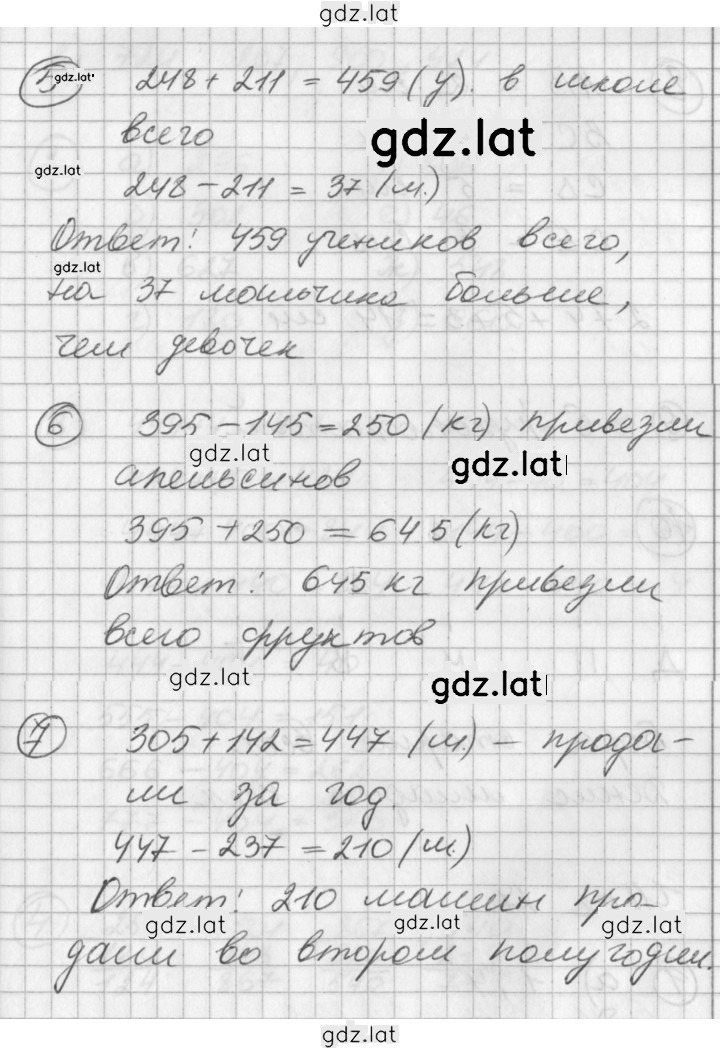 gdz.lat
5 gdz.lat 248 + 211 = 459 (у). в школе
всего gdz.lat
gdz.lat
248 - 211 = 37 (м.)
Ответ: 459 учеников всего,
gdz.lat
на 37 мальчика больше,
чем девочек
6 395 - 145 = 250 (кг) привезли
gdz.lat gdz.lat
апельсинов
395 + 250 = 645 (кг)
Ответ: 645 кг привезли
всего фруктов
gdz.lat gdz.lat
7 305 + 142 = 447 (м.) - прода-
ли за год.
447 - 237 = 210 (м.)
Ответ: 210 машин про-
gdz.lat gdz.lat gdz.lat
дали во втором полугодии.
gdz.lat